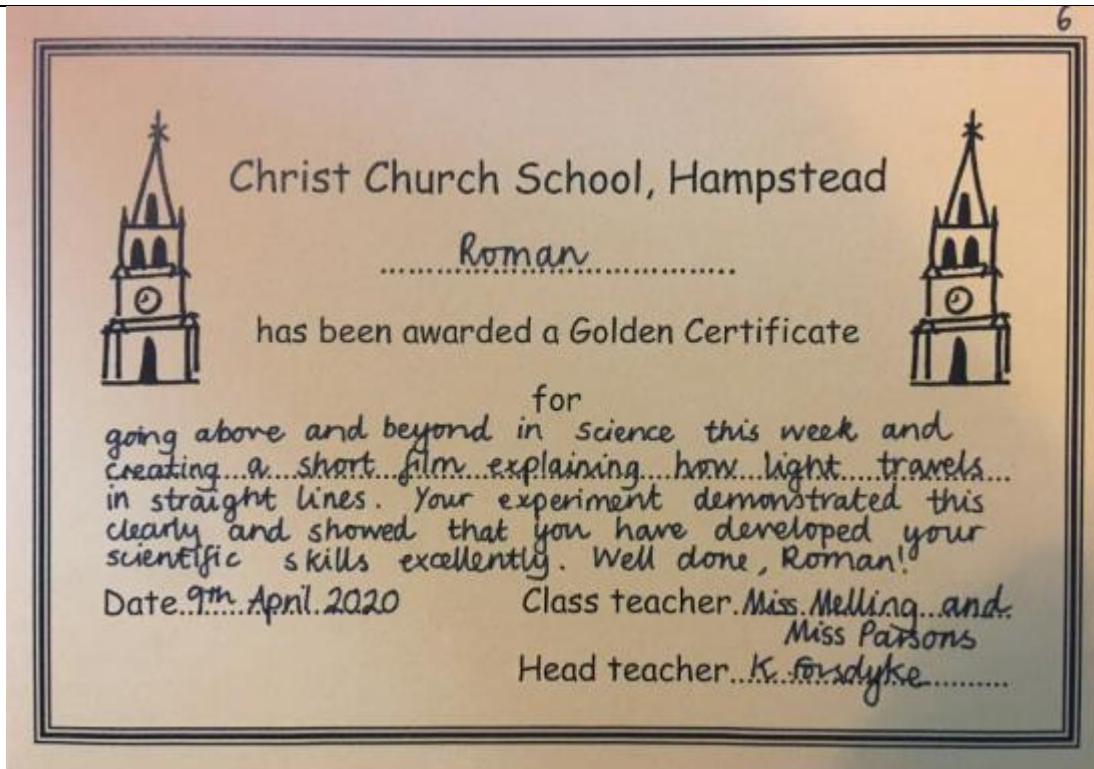 6
Christ Church School, Hampstead
Roman
has been awarded a Golden Certificate
for
going above and beyond in science this week and
creating a short film explaining how light travels
in straight lines. Your experiment demonstrated this
clearly and showed that you have developed your
scientific skills excellently. Well done, Roman!
Date 9th April 2020 Class teacher Miss Melling and
Miss Parsons
Head teacher K Forsdyke